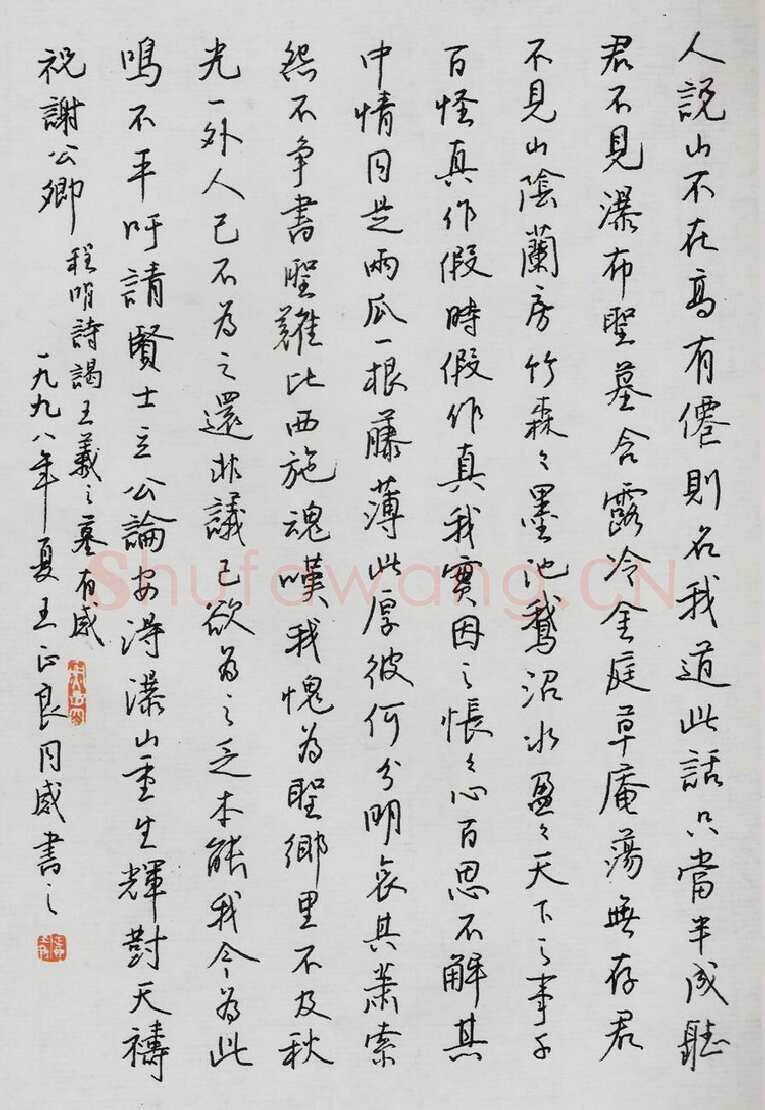 人説山不在高有僊則名我道此話只當半成聽
君不見瀑布聖墓含露冷金庭草庵蕩無存君
不見山陰蘭房竹森々墨池鵝沼水盈々天下之事千
百怪真作假時假作真我實因之悵々心百思不解其
中情同是兩瓜一根藤薄此厚彼何分明哀其蕭索
怨不争書聖難比西施魂嘆我愧為聖鄉里不及秋
光一外人己不為之還非議己欲為之乏本能我今為此
鳴不平吁請賢士主公論安得瀑山重生輝對天禱
祝謝公卿
程明詩謁王羲之墓有感
一九九八年夏王正良同感書之
Shufawang.CN